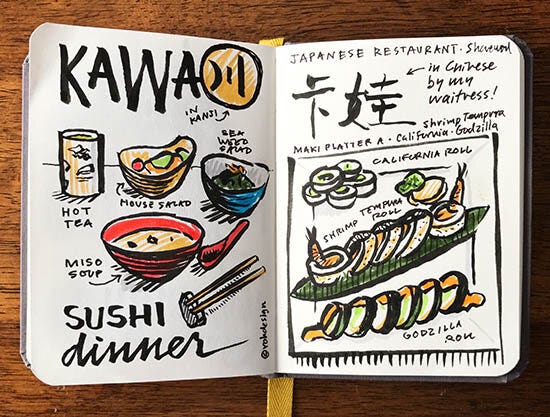 KAWA川
IN
KANJI
SEA
WEED
SALAD
HOT
TEA
HOUSE SALAD
MISO
SOUP
SUSHI
dinner
@rohdesign
JAPANESE RESTAURANT · Sherwood
卡娃
in Chinese
by my
waitress!
Shrimp Tempura
MAKI PLATTER A · California · Godzilla
CALIFORNIA ROLL
SHRIMP TEMPURA
ROLL
GODZILLA
ROLL